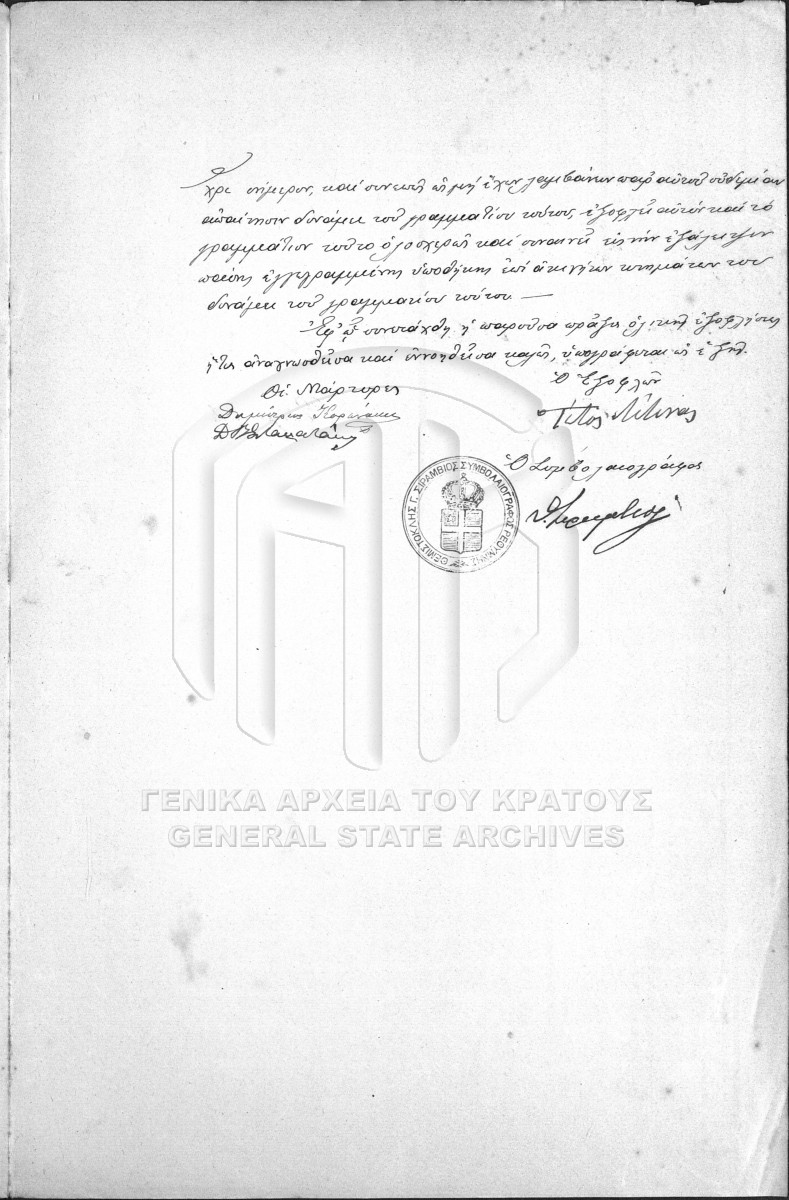 χρι σήμερον, καὶ συνεπῶς μὴ ἔχων λαμβάνειν παρ' αὐτοῦ οὐδεμίαν
ἀπαίτησιν δυνάμει τοῦ γραμματίου τούτου, ἐξοφλεῖ αὐτὸν καὶ τὸ
γραμμάτιον τοῦτο ὁλοσχερῶς καὶ συναινεῖ εἰς τὴν ἐξάλειψιν
πάσης ἐγγεγραμμένης ὑποθήκης ἐπὶ ἀκινήτων κτημάτων του
δυνάμει τοῦ γραμματίου τούτου. —
Ἐφ' ᾧ συνετάχθη ἡ παροῦσα πρᾶξις ὁλικῆς ἐξοφλήσεως
ἥτις ἀναγνωσθεῖσα καὶ ἐννοηθεῖσα καλῶς, ὑπογράφεται ὡς ἑξῆς.
Οἱ Μάρτυρες
Ὁ Ἐξοφλῶν
Δημήτριος
Τίτος
Ὁ Συμβολαιογράφος
ΘΕΜΙΣΤΟΚΛΗΣ Γ. ΣΙΡΑΜΒΙΟΣ ΣΥΜΒΟΛΑΙΟΓΡΑΦΟΣ ΡΕΘΥΜΝΗΣ
ΓΕΝΙΚΑ ΑΡΧΕΙΑ ΤΟΥ ΚΡΑΤΟΥΣ
GENERAL STATE ARCHIVES